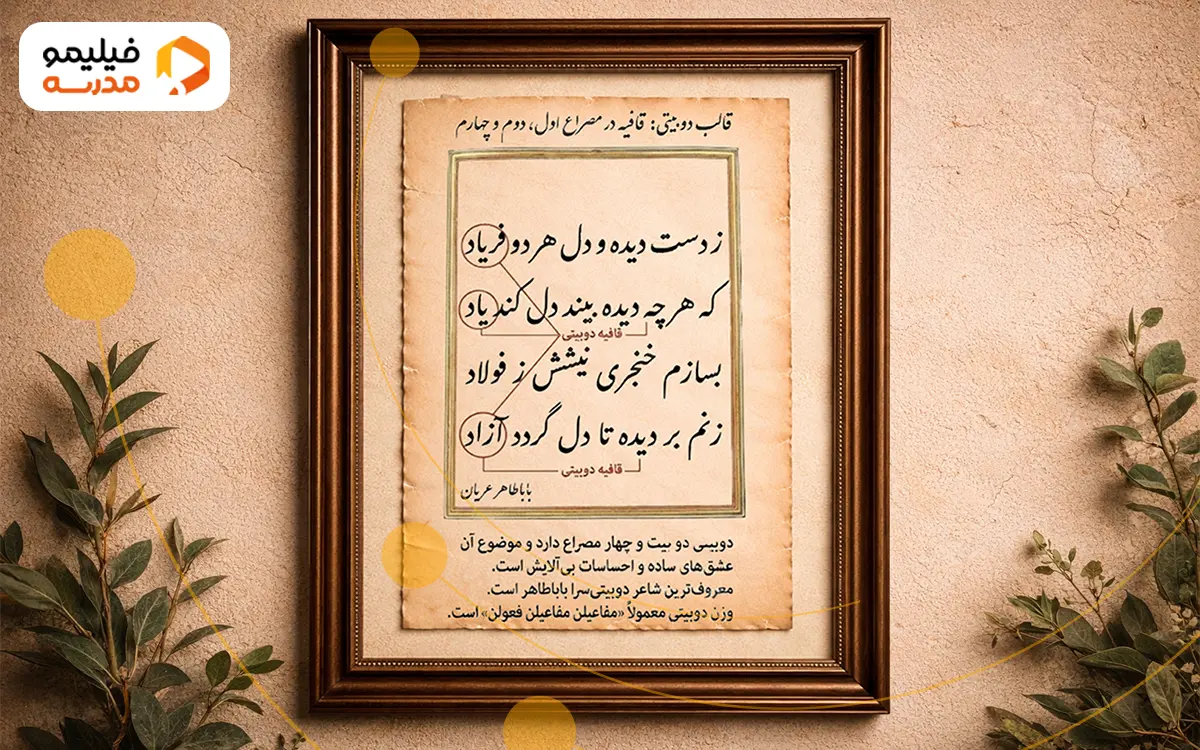 فیلیمو
مدرسه
قالب دوبیتی: قافیه در مصراع اول، دوم و چهارم
ز دست دیده و دل هر دو فریاد
که هر چه دیده بیند دل کند یاد
قافیه دوبیتی
بسازم خنجری نیشش ز فولاد
زنم بر دیده تا دل گردد آزاد
قافیه دوبیتی
باباطاهر عریان
دوبیتی دو بیت و چهار مصراع دارد و موضوع آن
عشق‌های ساده و احساسات بی‌آلایش است.
معروف‌ترین شاعر دوبیتی‌سرا باباطاهر است.
وزن دوبیتی معمولاً «مفاعیلن مفاعیلن فعولن» است.